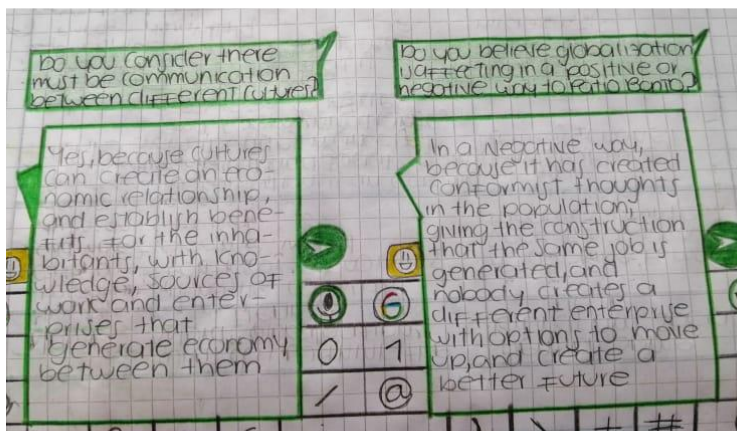 Do you consider there
must be communication
between different cultures?
Yes, because cultures
can create an eco-
nomic relationship,
and establish bene-
fits for the inha-
bitants, with kno-
wledge, sources of
work and enter-
prises that
generate economy
between them
Do you believe globalization
is affecting in a positive or
negative way to Patio Bonito?
In a Negative way,
because it has created
conformist thoughts
in the population,
giving the construction
that the same job is
generated, and
nobody creates a
different enterprise
with options to move
up, and create a
better future
0 1
/ @
+ #